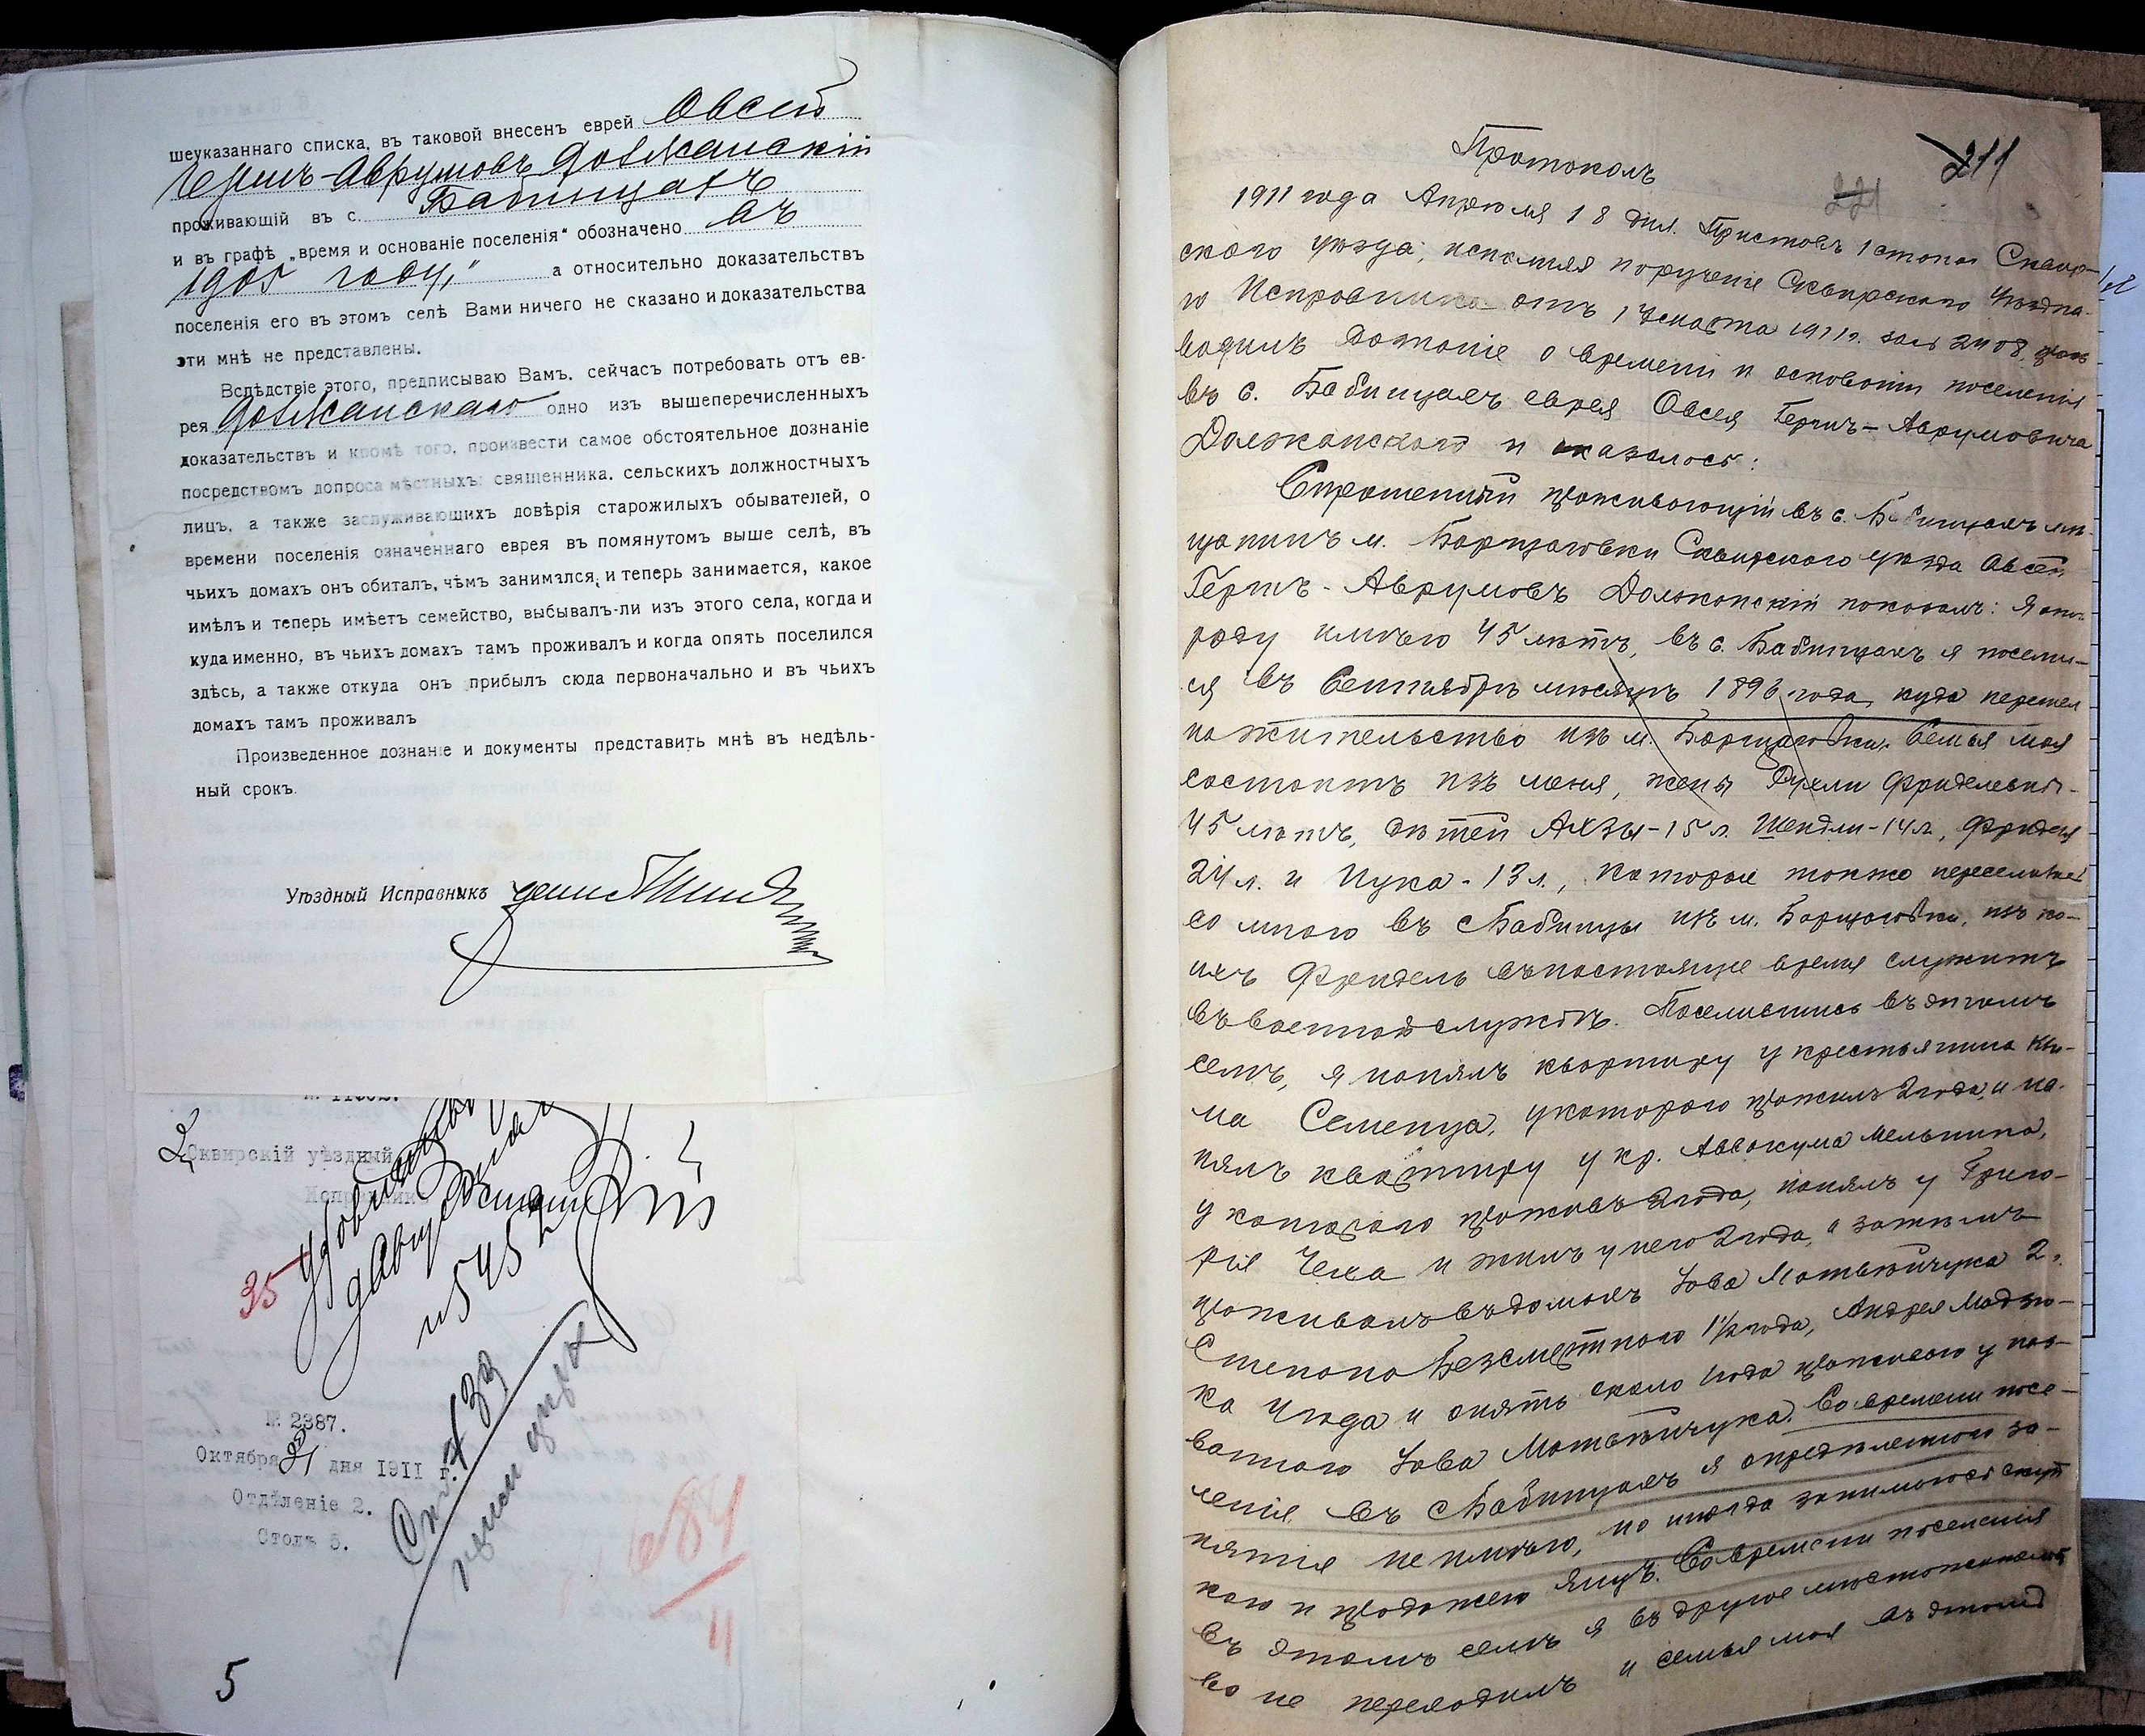 шеуказаннаго списка, въ таковой внесенъ еврей Овсей
Гершъ-Аврумовъ Должанскій
проживающій въ с. Бабинцахъ
и въ графѣ „время и основаніе поселенія“ обозначено „въ
1905 году,“ а относительно доказательствъ
поселенія его въ этомъ селѣ Вами ничего не сказано и доказательства
эти мнѣ не представлены.
Вслѣдствіе этого, предписываю Вамъ. сейчасъ потребовать отъ ев-
рея Должанскаго одно изъ вышеперечисленныхъ
доказательствъ и кромѣ того, произвести самое обстоятельное дознаніе
посредствомъ допроса мѣстныхъ: священника. сельскихъ должностныхъ
лицъ, а также заслуживающихъ довѣрія старожилыхъ обывателей, о
времени поселенія означеннаго еврея въ помянутомъ выше селѣ, въ
чьихъ домахъ онъ обиталъ, чѣмъ занимался, и теперь занимается, какое
имѣлъ и теперь имѣетъ семейство, выбывалъ-ли изъ этого села, когда и
куда именно, въ чьихъ домахъ тамъ проживалъ и когда опять поселился
здѣсь, а также откуда онъ прибылъ сюда первоначально и въ чьихъ
домахъ тамъ проживалъ
Произведенное дознаніе и документы представить мнѣ въ недѣль-
ный срокъ.
Уѣздный Исправникъ
Сквирскій уѣздный
Исправникъ
35
№ 2387.
Октября 21 дня 1911 г.
Отдѣленіе 2.
Столъ 5.
84
4
5
211
221
Протоколъ
1911 года Апрѣля 18 дня. Приставъ 1 стана Сквир-
скаго уѣзда, исполняя порученіе Сквирскаго Уѣздна-
го Исправника отъ 17 марта 1911 г. за № 2408, произ
водилъ дознаніе о времени и основаніи поселенія
въ с. Бабинцахъ еврея Овсея Гершъ-Аврумовича
Должанскаго и оказалось:
Спрошенный проживающій въ с. Бабинцахъ мѣ-
щанинъ м. Борщаговки Сквирскаго уѣзда Овсей
Гершъ-Аврумовъ Должанскій показалъ: Я отъ
роду имѣю 45 лѣтъ, въ с. Бабинцахъ я поселил-
ся въ Сентябрѣ мѣсяцѣ 1896 года, куда перешел
на жительство изъ м. Борщаговки. Семья моя
состоитъ изъ меня, жены Рухли Фриделевны-
45 лѣтъ, дѣтей Анзы-15 л. Шендли-14 л., Фриделя
24 л. и Нука-13 л., которые также переселились
со мною въ с. Бабинцы изъ м. Борщаговки, изъ ко-
ихъ Фридель въ настоящее время служитъ
въ военной службѣ. Поселившись въ этомъ
селѣ, я нанялъ квартиру у крестьянина Ки-
ма Семенца, у котораго прожилъ 2 года, и на-
нялъ квартиру у кр. Аввакума Мельника,
у котораго проживъ 2 года, нанялъ у Григо-
рія Чеха и жилъ у него 2 года, а затѣмъ
проживалъ въ домахъ Іова Матвѣйчука 2 г.
Степана Безсмертного 1½ года, Андрея Мадзю-
ка 4 года и опять около 1 года проживаю у наз-
ваннаго Іова Матвѣйчука. Со времени посе-
ленія въ с. Бабинцахъ я опредѣленнаго за-
нятія не имѣю, но иногда занимаюсь скуп
кою и продажею яицъ. Со времени поселенія
въ этомъ селѣ я въ другое мѣстожительст
во не переходилъ и семья моя въ этомъ